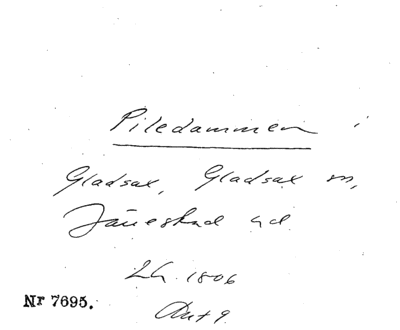 Piledammen i
Gladsax, Gladsax sn,
Järrestad hd
LH. 1806
Akt 9.
Nr 7695.